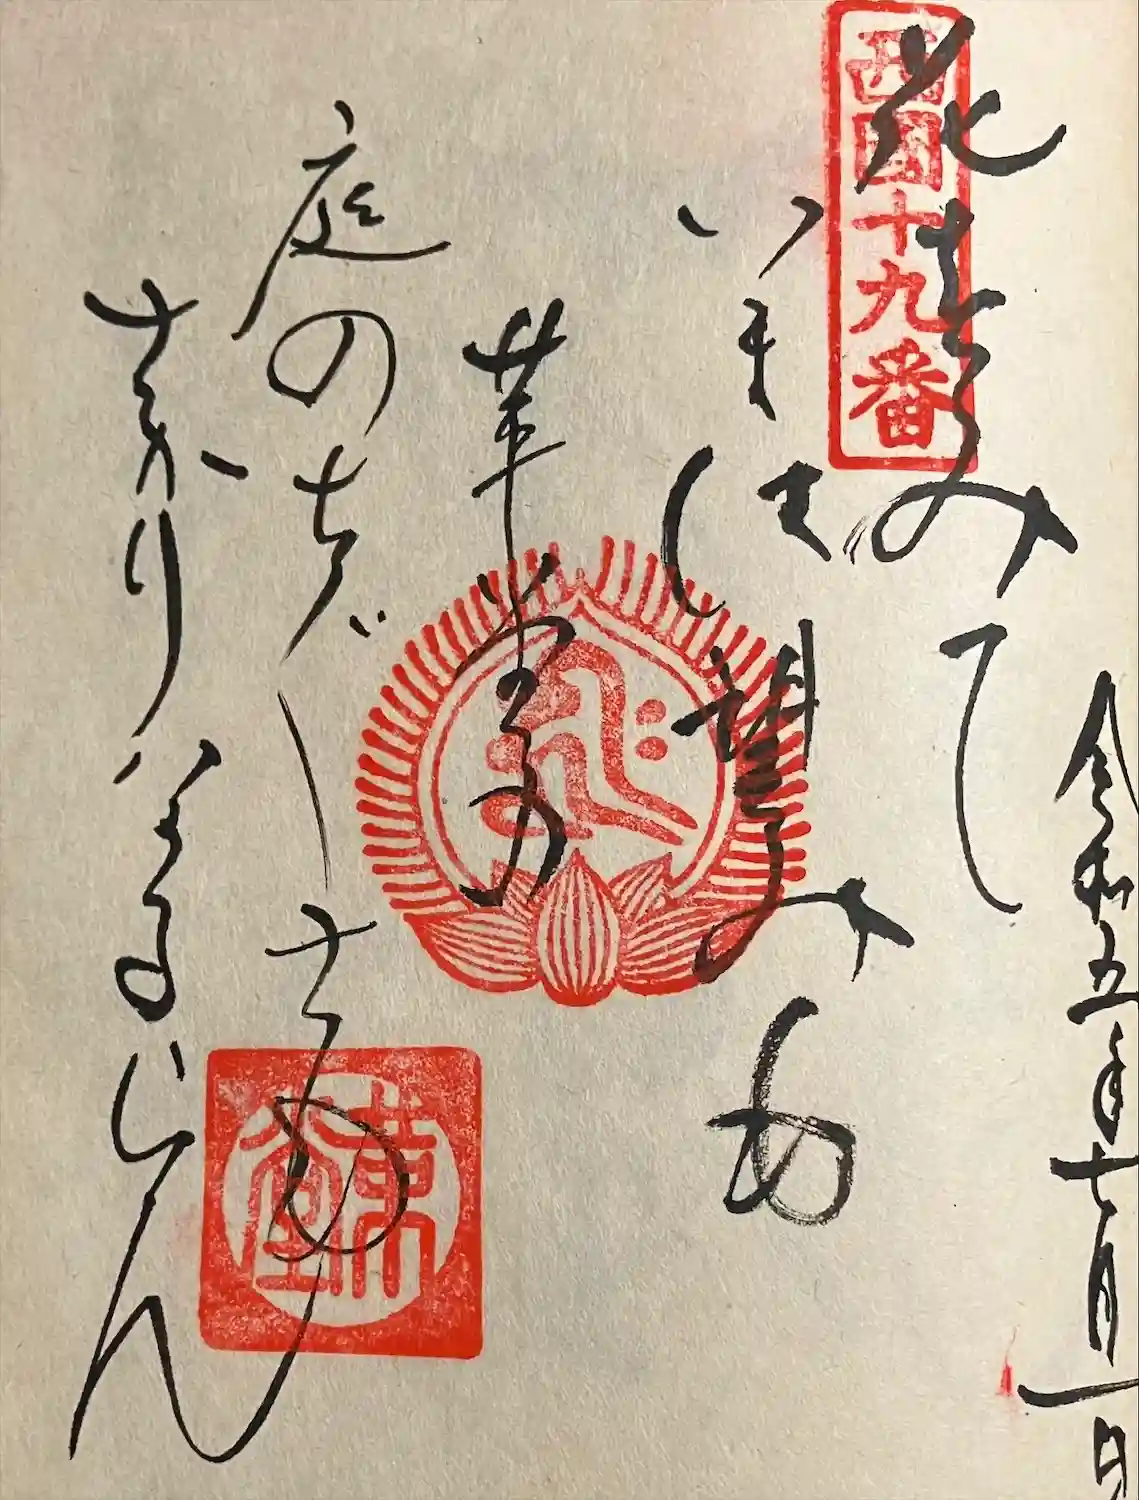 令和五年七月一日
西國十九番
花をみて
いまは望みも
革堂の
庭のちぐさも
さかりなるらん
革堂